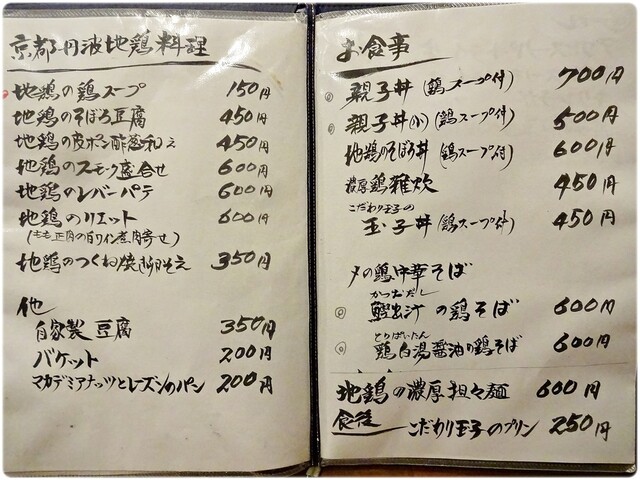 京都・丹波地鶏料理
地鶏の鶏スープ 150円
地鶏のそぼろ豆腐 450円
地鶏の皮ポン酢葱和え 450円
地鶏のスモーク盛合せ 600円
地鶏のレバーパテ 600円
地鶏のリエット 600円
(もも正肉の白ワイン煮肉寄せ)
地鶏のつくね焼き 卵月見そえ 350円
他
自家製豆腐 350円
バケット 200円
マカデミアナッツとレーズンのパン 200円
お食事
親子丼 (鶏スープ付) 700円
親子丼(小) (鶏スープ付) 500円
地鶏のそぼろ丼 (鶏スープ付) 600円
濃厚鶏雑炊 450円
こだわり玉子の
玉子丼 (鶏スープ付) 450円
〆の鶏中華そば
かつおだし
鰹出汁の鶏そば 600円
とりぱいたん
鶏白湯醤油の鶏そば 600円
地鶏の濃厚担々麺 600円
食後
こだわり玉子のプリン 250円